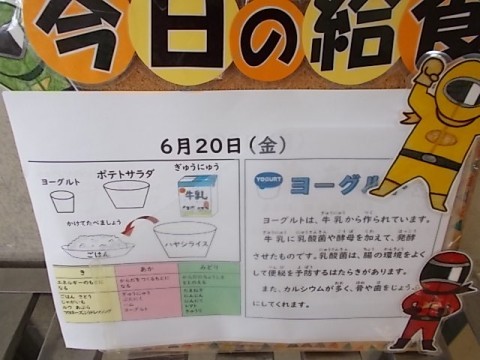 今日の給食
6月20日(金)
ヨーグルト
ポテトサラダ
ぎゅうにゅう
牛乳
かけてたべましょう
ごはん
ハヤシライス
き
あか
みどり
エネルギーのもとに
なる
ごはん さとう
じゃがいも
ぎゅうにゅう
ヨーグルト
YOGURT
ヨーグル
ヨーグルトは、牛乳から作られています。
牛乳に乳酸菌や酵母を加えて、発酵
させたものです。乳酸菌は、腸の環境をよく
して便秘を予防するはたらきがあります。
また、カルシウムが多く、骨や歯をじょう
にしてくれます。